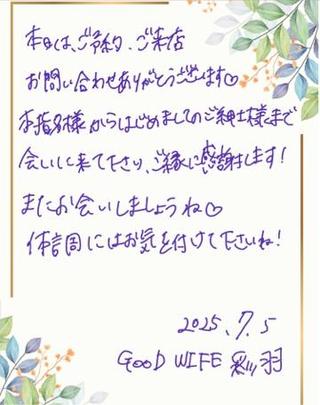 本日は、ご予約、ご来店
お問い合わせありがとうございます♡
本指名様からはじめましてのご紳士様まで
会いに来て下さり、ご縁に感謝します!
またお会いしましょうね♡
体調にはお気を付けて下さいね!
2025.7.5
GOOD WIFE 彩羽